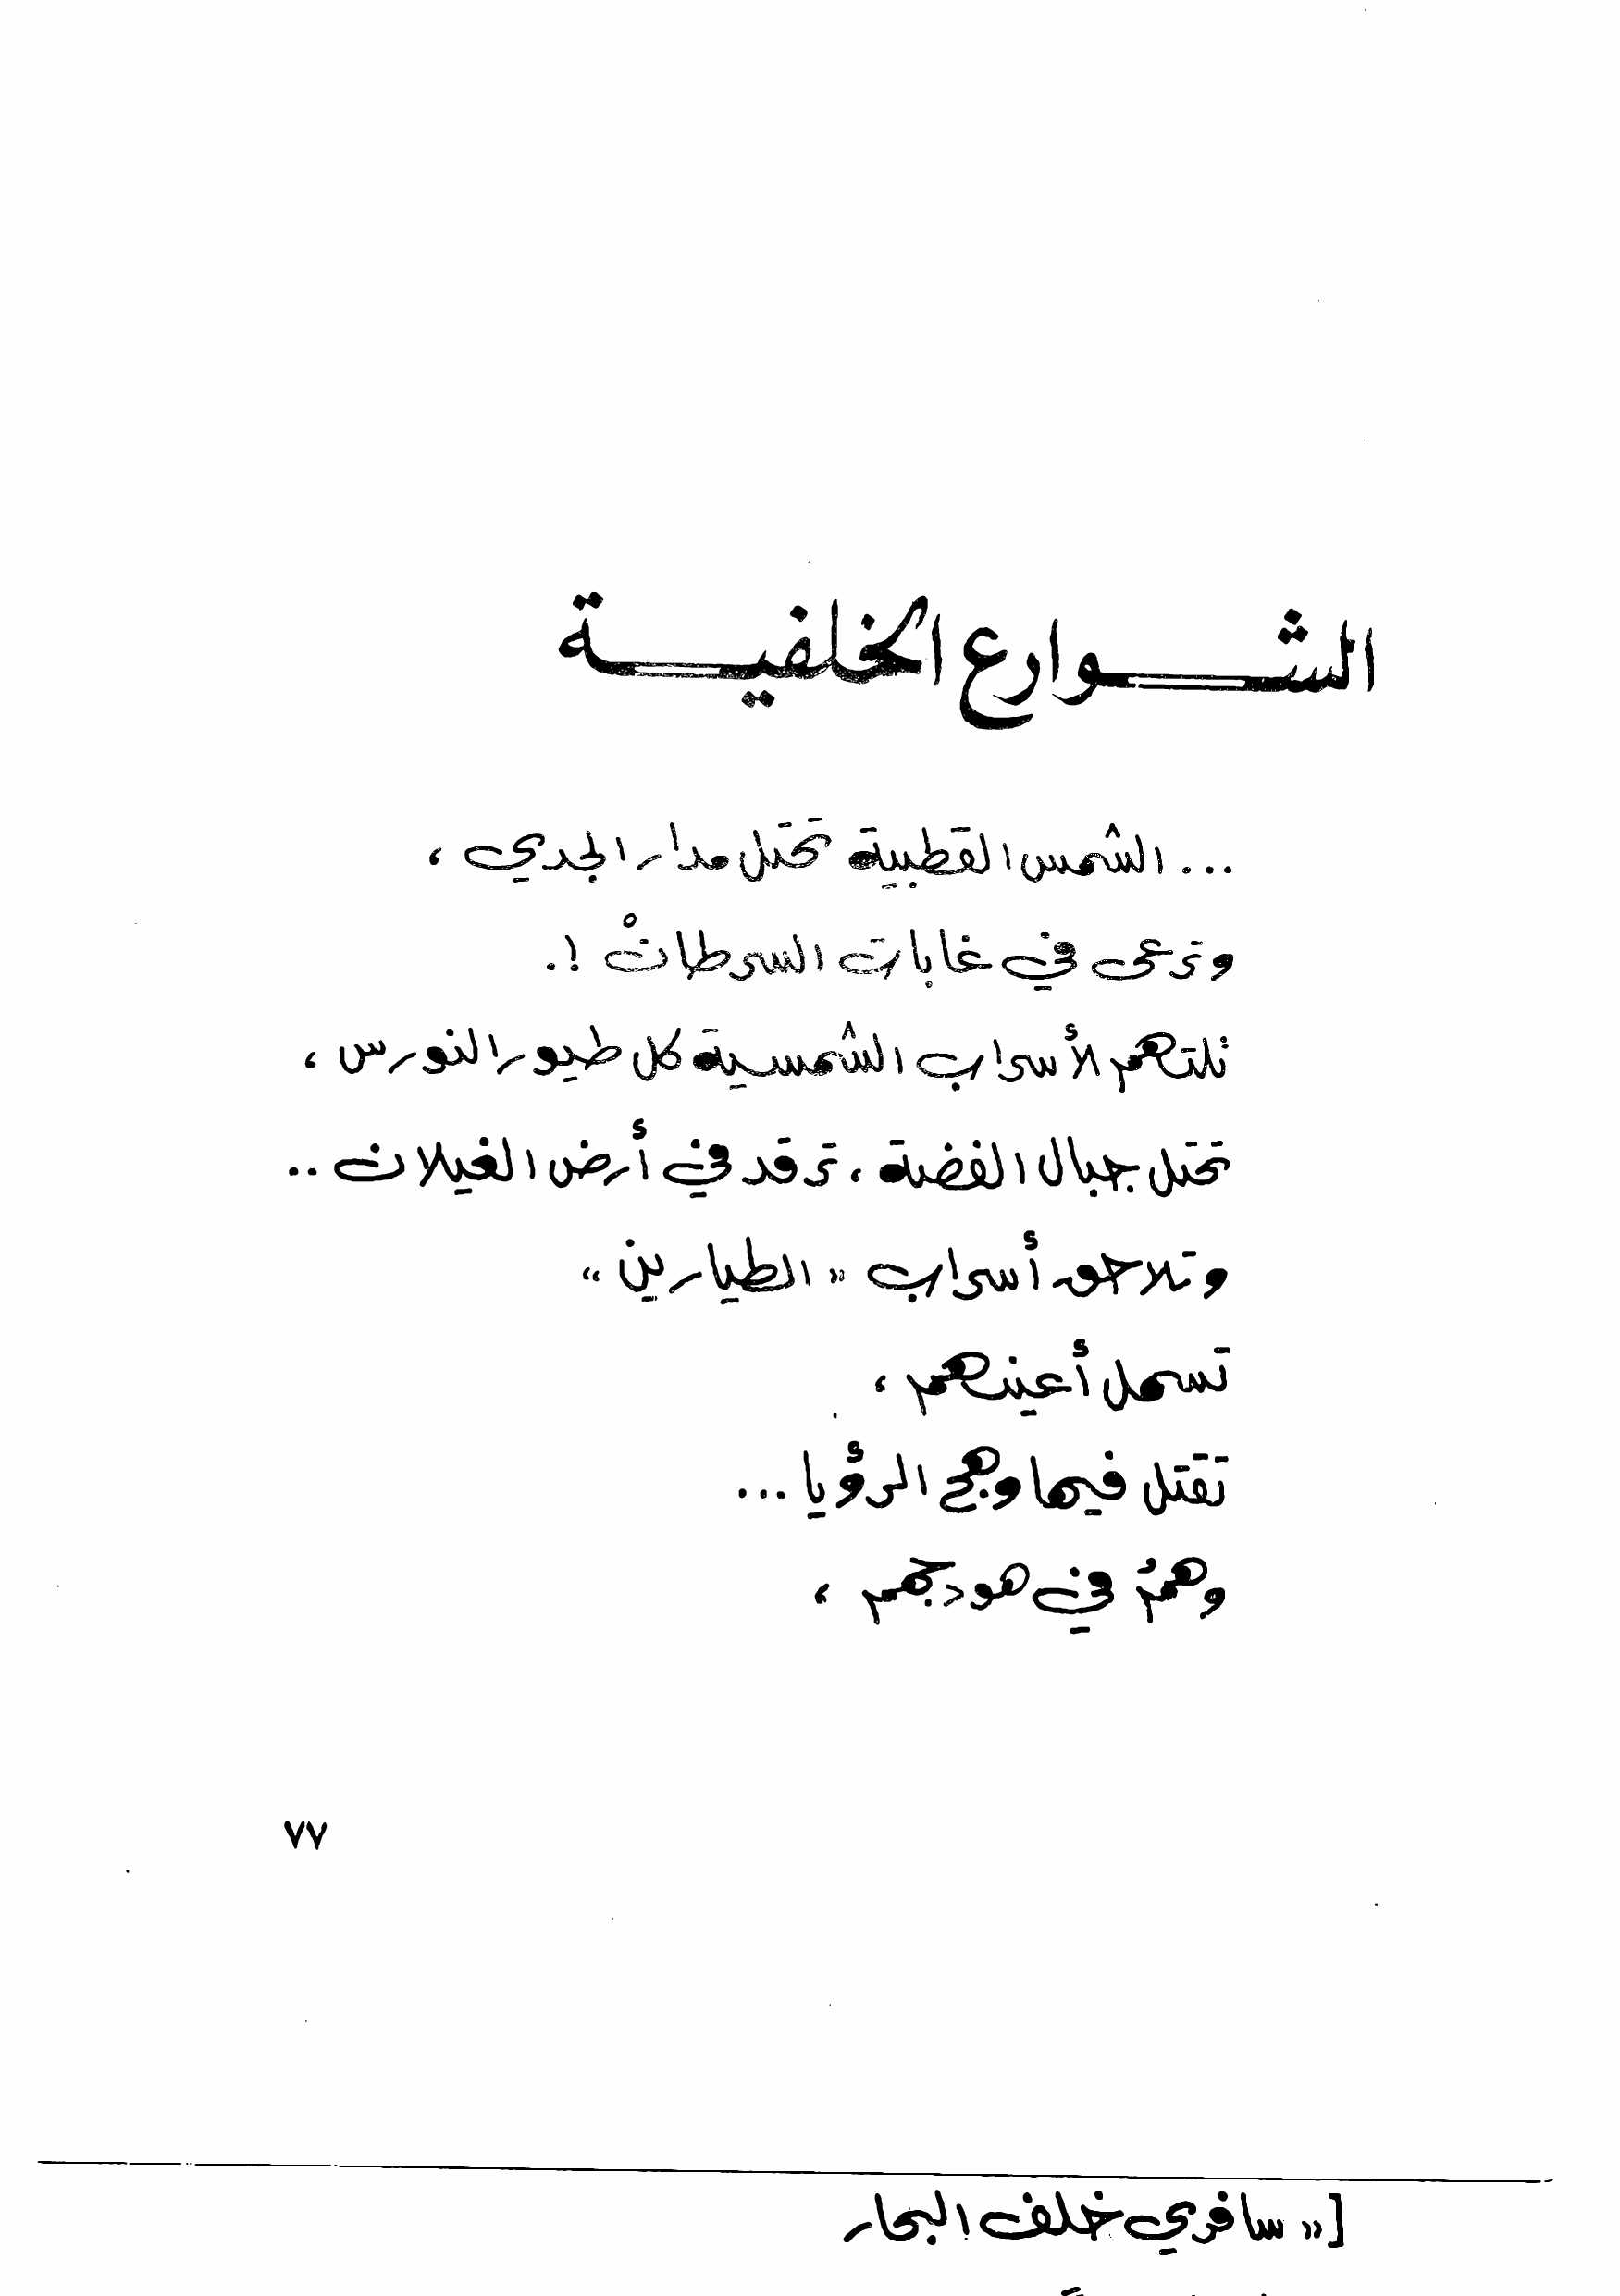 الشوارع الخلفية
... الشمس القطبية تحتل مدار الجدي ،
وترعى في غابات السرطانْ !.
تلتهم الأسراب الشمسية كل طيور النورس ،
تحتل جبال الفضة ، ترقد في أرض الغيلان ..
وتلاحق أسراب « الطيارين »
تسمل أعينهم ،
تقتل فيها وهج الرؤيا ...
وهمُ في هودجهم ،
٧٧
[ « سافري خلف البحار